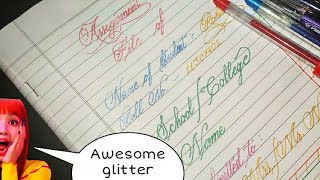 Assignment
File of
Name of Student :-
Roll No. :-
School/College
Name
Submitted to :
Awesome
glitter